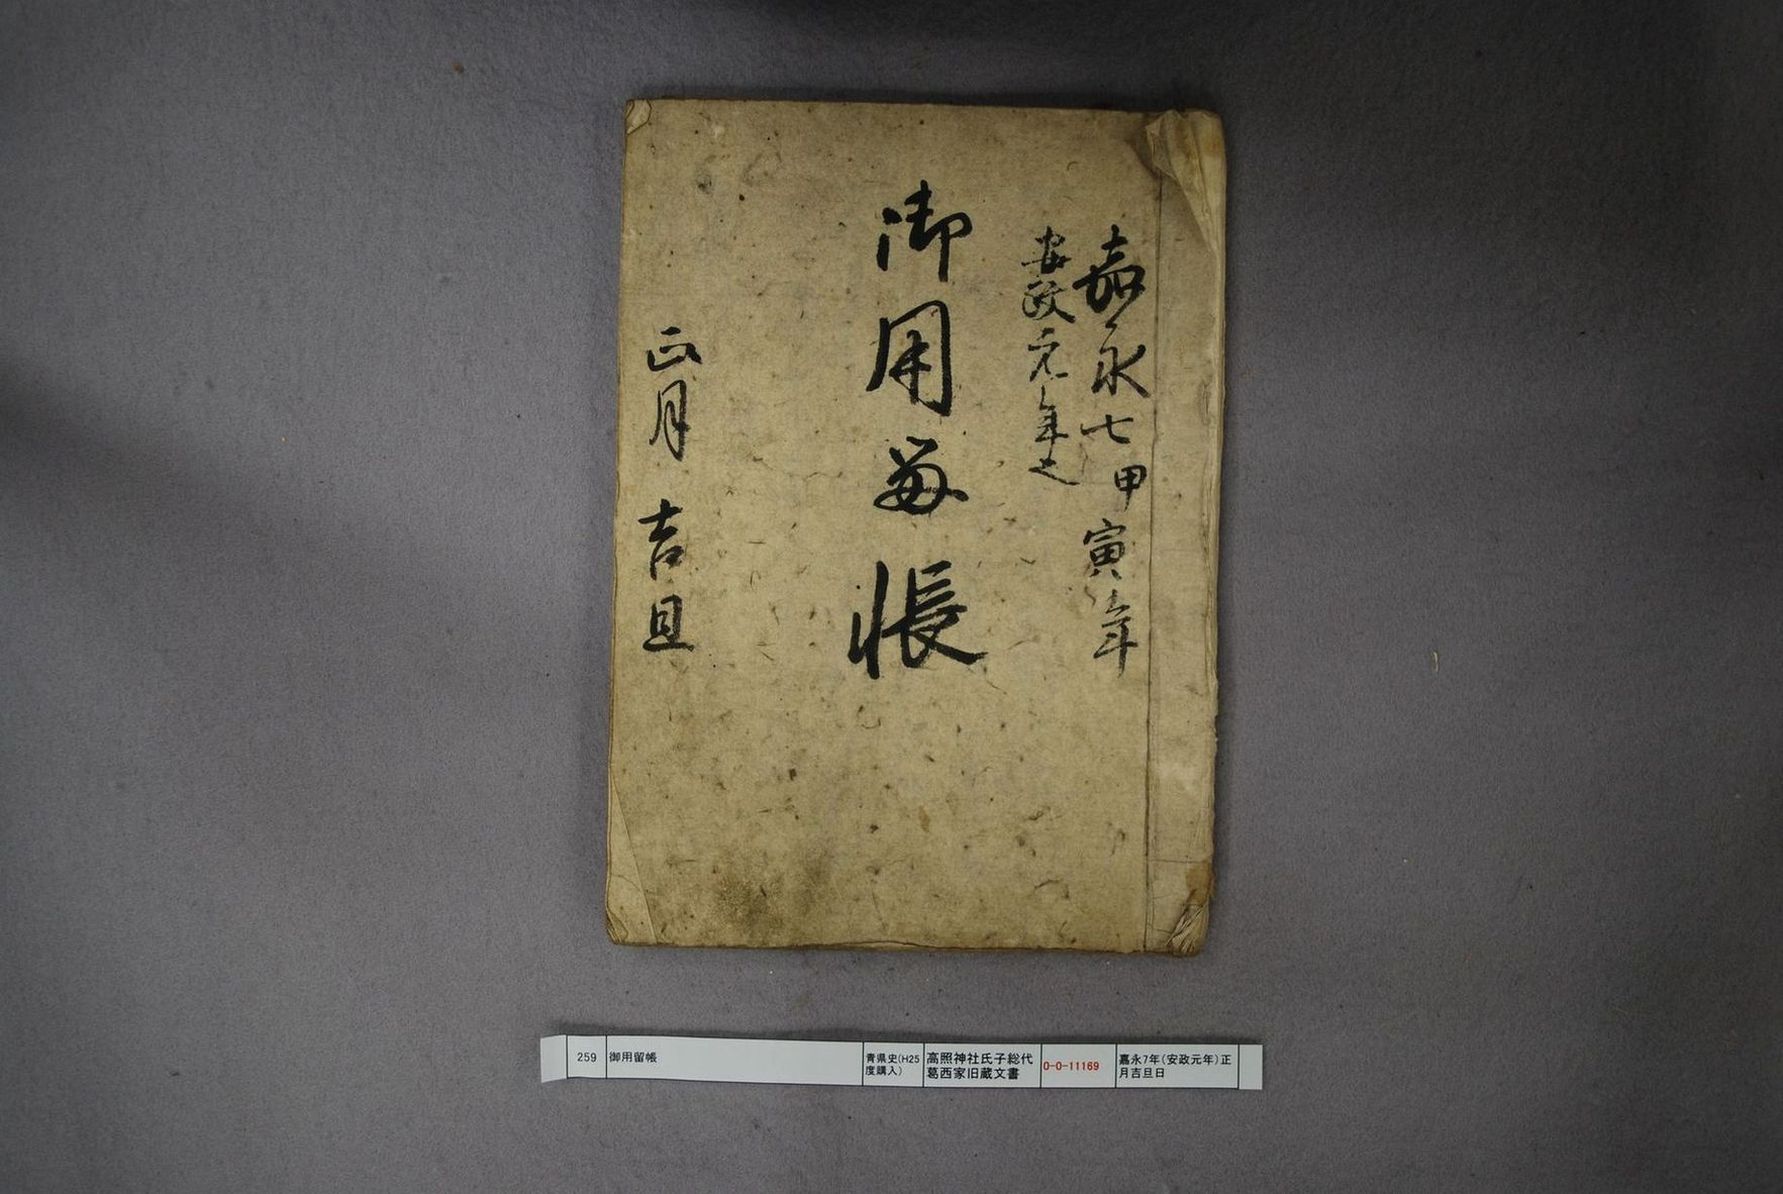 嘉永七甲寅年
安政元年也
御用留帳
正月吉旦
259
御用留帳
青県史(H25
度購入)
高照神社氏子総代
葛西家旧蔵文書
0-0-11169
嘉永7年(安政元年)正
月吉旦日